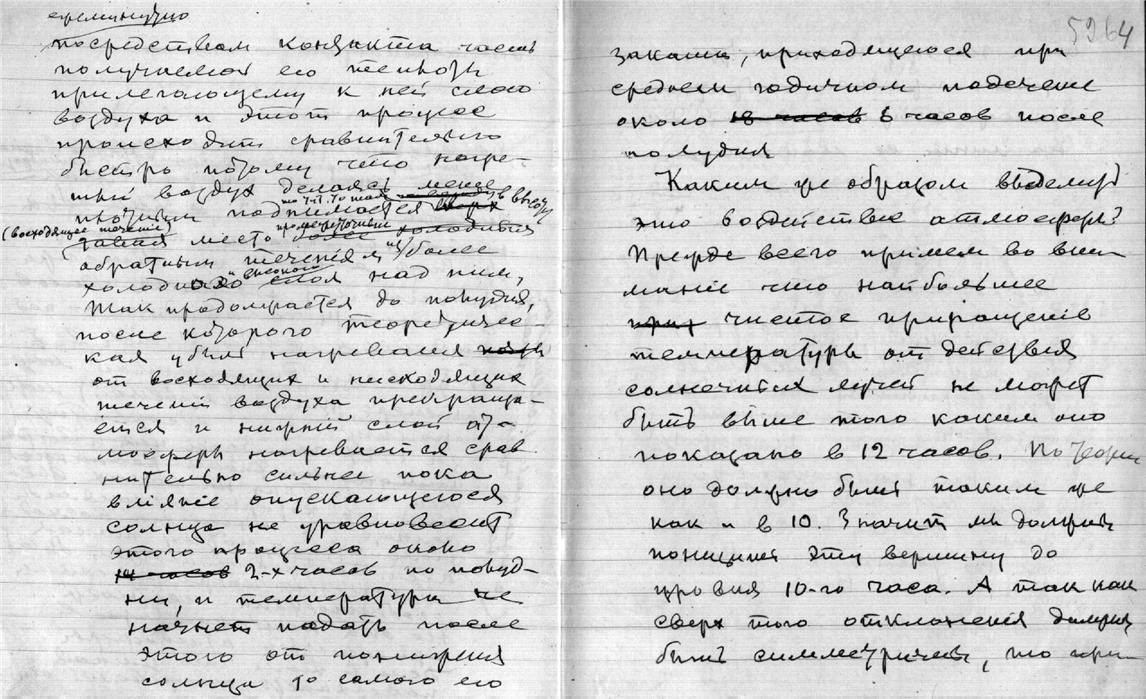 ежеминутно
посредством контакта часть
получаемой ею теплоты
прилегающему к ней слою
воздуха и этот процесс
происходит сравнительно
быстро потому что нагре-
тый воздух делаясь менее
плотным поднимается вверх в высоту
(восходящее течение)
давая место более холодным
обратным течениям более
холодного слоя над ним,
Так продолжается до полудня,
после которого теоретичес-
кая убыль нагревания
от восходящих и нисходящих
течений воздуха прекраща-
ется и нижний слой ат-
мосферы нагревается срав
нительно сильнее пока
влияніе опускающегося
солнца не уравновесит
этого процесса около
2-х часов по полуд-
ни, и температура не
начнет падать после
этого от понижения
солнца до самого его
5964
заката, приходящегося при
среднем годичном
около 6 часов после
полудня
Каким же образом
это воздействие атмосферы?
Прежде всего примем во вни-
маніе что наибольшее
чистое приращеніе
температуры от действия
солнечных лучей не может
быть выше того каким оно
показано в 12 часов. По теории
оно должно быть таким же
как и в 10. Значит мы должны
понизить эту вершину до
уровня 10-го часа. А так как
сверх того отклонения должны
быть симметричны, то при-